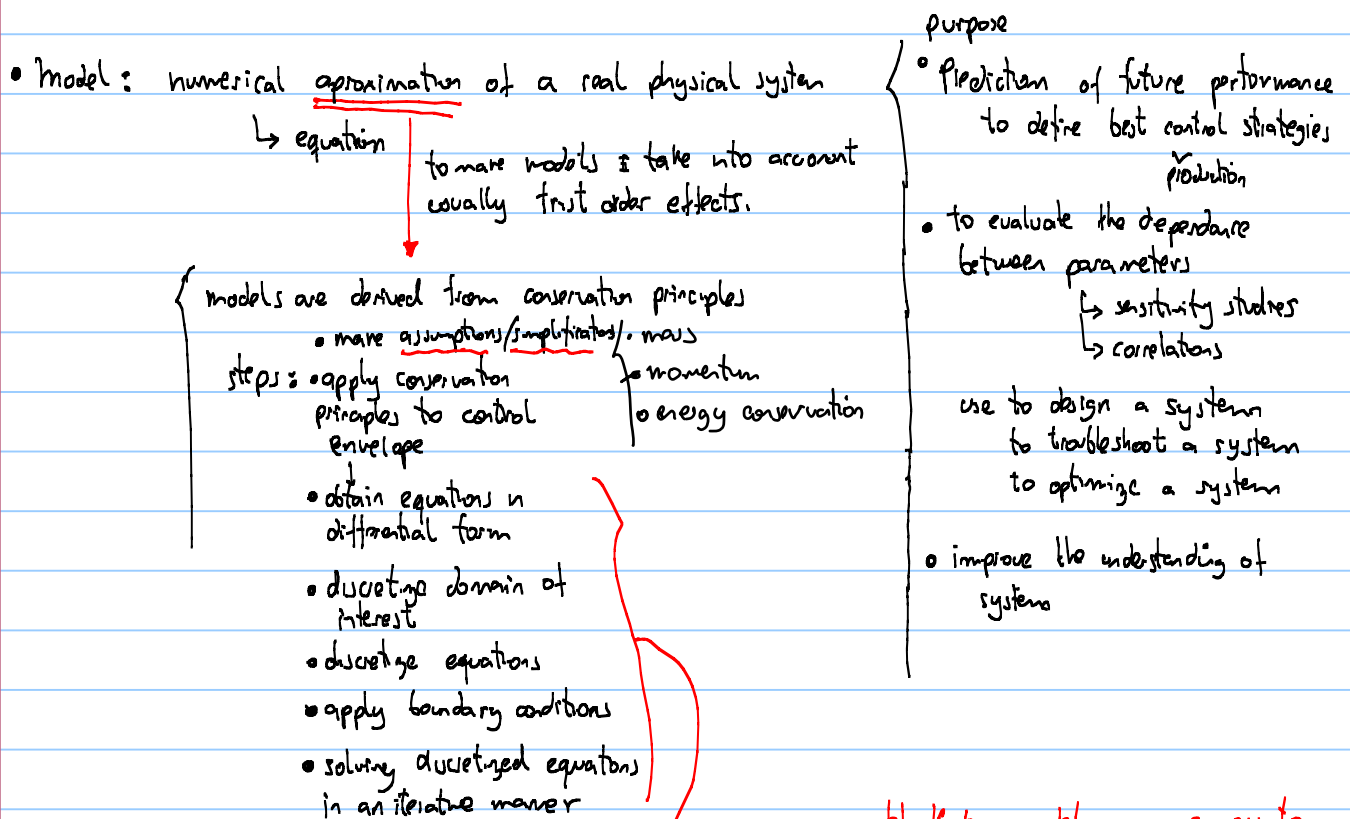 • Model: numerical aproximation of a real physical system
↳ equation
to make models I take into account
usually first order effects.
models are derived from conservation principles
• make assumptions/simplifications
• mass
• momentum
• energy conservation
steps: • apply conservation
principles to control
envelope
• obtain equations in
differential form
• discretize domain of
interest
• discretize equations
• apply boundary conditions
• solving discretized equations
in an iterative maner
purpose
• Prediction of future performance
to define best control strategies
production
• to evaluate the dependance
between parameters
↳ sensitivity studies
↳ correlations
use to design a system
to troubleshoot a system
to optimize a system
• improve the understanding of
systems